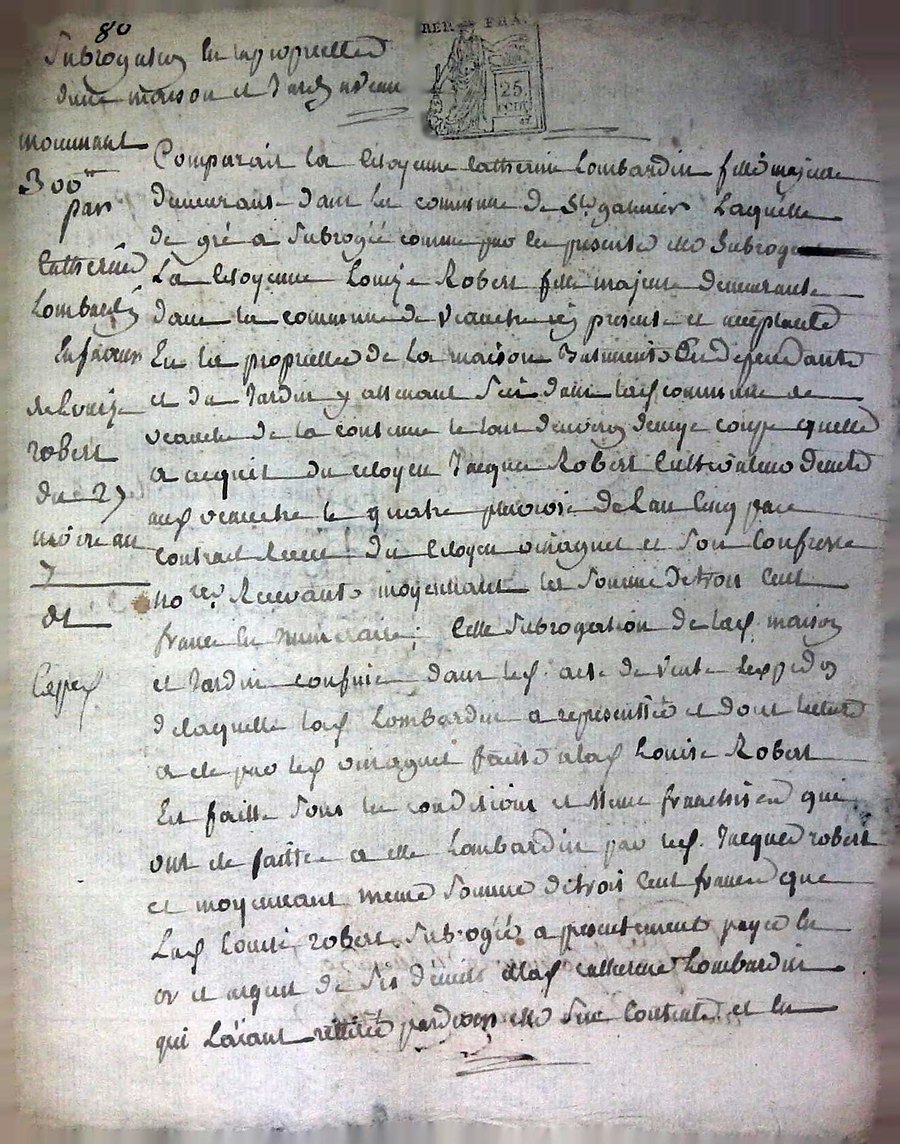 80
Subrogation en la proprietté
d'une maison et Jardin a veau
REP. FRA.
25.
CENT.
moienant
300 ₶
par
Catherine
Lombardin
En faveur
de Louize
robert
du 27
nivôse an
7
dt
Expé
Comparait la Citoyenne Catherine Lombardin fille majeure
demeurante dans la commune de St galmier Laquelle
de gré a Subrogée comme par les presente elle Subroge
La Citoyenne Louize Robert fille majeure demeurante
dans la commune de veauche icy presente et acceptante
En la proprietté de la maison Batiments En dependants
et du Jardin y attenant Sis dans lad commune de
veauche de la contenue le tout d'environ demye coupe quelle
a acquit du citoyen Jacque Robert Cultivateur
aud veauche le quatre de Lan Cinq par
contrat Receu du Citoyen et Son Confrere
no.res Recevants moyennant la Somme de trois Cent
francs En Numeraire, Cette Subrogation de lad. maison
et Jardin confinée dans led. acte de vente
de laquelle lad Lombardin a representée et dont lecture
a été par led faitte a lad Louise Robert
Est faitte Sous les conditions et meme franchises qui
ont été faitte a elle Lombardin par led. Jacque robert
et moyennant meme Somme de trois Cent francs que
Lad Louise robert Subrogée a presentement payée en
or et argent de Ses deniers a lad Catherine Lombardin
qui Layant retirée elle Sen Contente et en